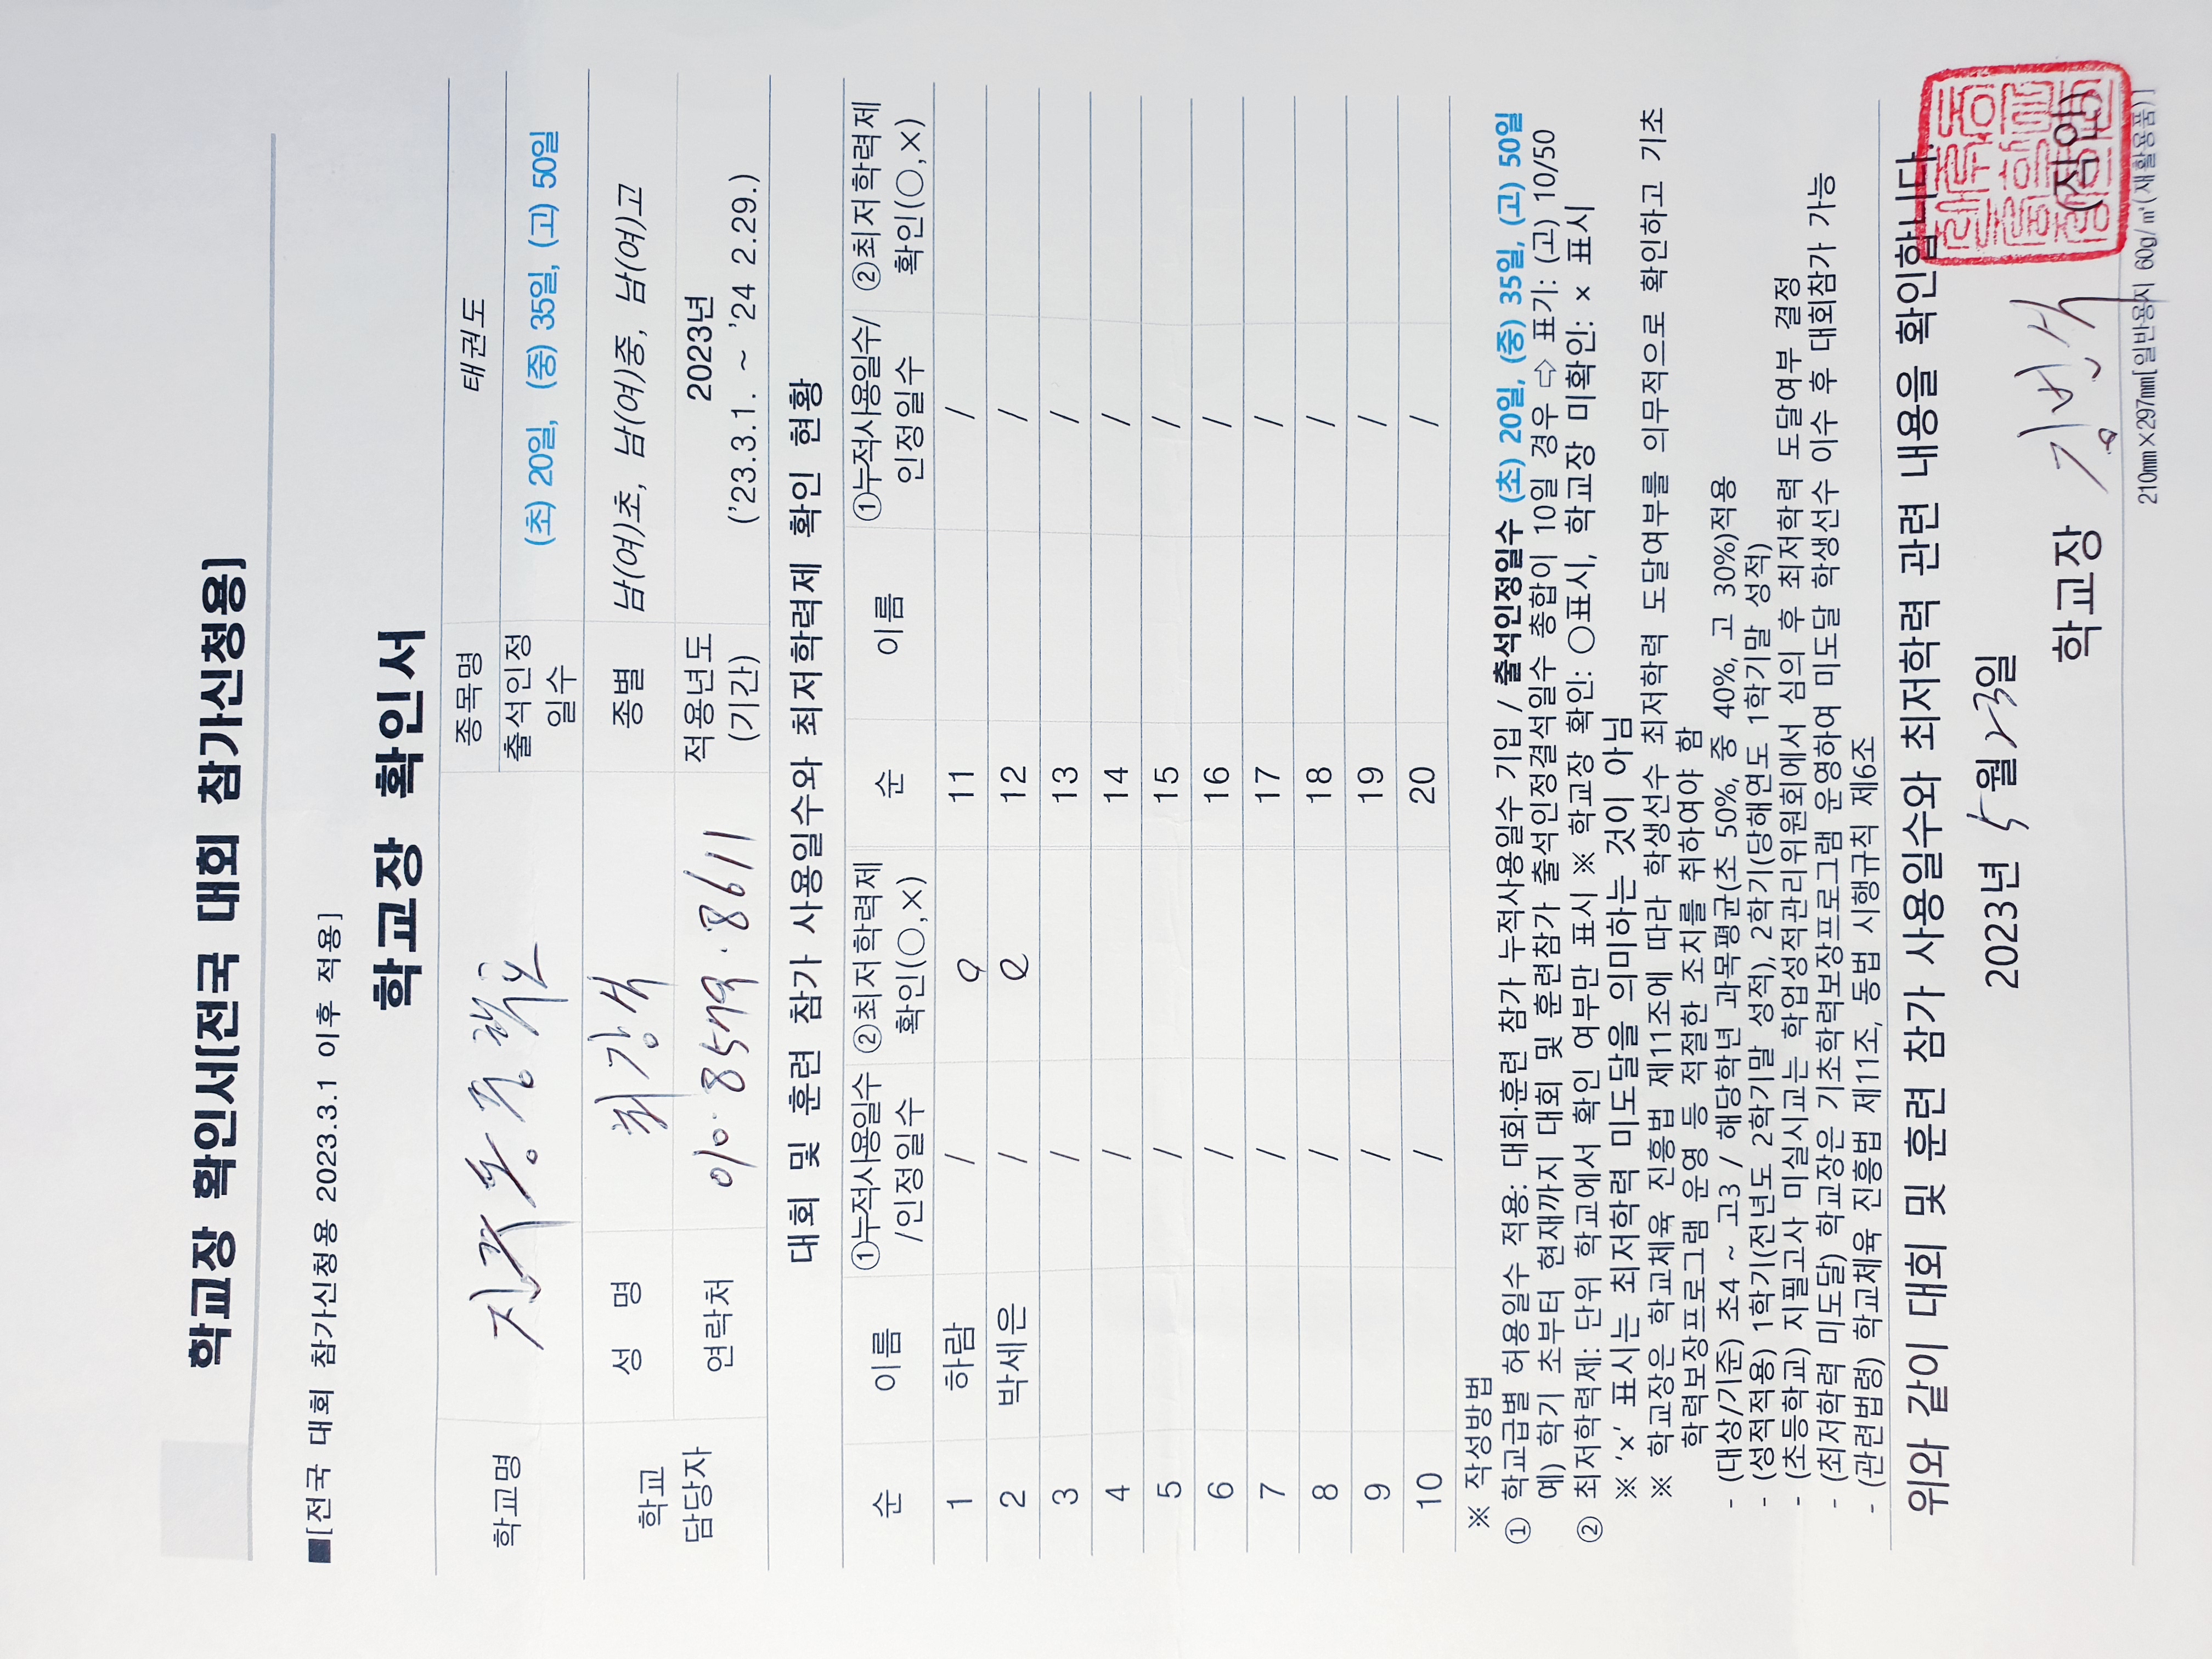 학교장 확인서[전국 대회 참가신청용]
■[전국 대회 참가신청용 2023.3.1 이후 적용]
학교장 확인서
학교명
종목명 태권도
출석인정 일수 (초) 20일, (중) 35일, (고) 50일
학교 담당자
성 명 최강석
종별 남(여)초, 남(여)중, 남(여)고
연락처 010·8579·8611
적용년도 (기간) 2023년 ('23.3.1. ~ '24 2.29.)
대회 및 훈련 참가 사용일수와 최저학력제 확인 현황
순 이름 ①누적사용일수 /인정일수 ②최저학력제 확인(○,×) 순 이름 ①누적사용일수/ 인정일수 ②최저학력제 확인(○,×)
1 하람 / ○ 11 /
2 박세은 / ○ 12 /
3 / 13 /
4 / 14 /
5 / 15 /
6 / 16 /
7 / 17 /
8 / 18 /
9 / 19 /
10 / 20 /
※ 작성방법
① 학교급별 허용일수 적용: 대회·훈련 참가 누적사용일수 기입 / 출석인정일수 (초) 20일, (중) 35일, (고) 50일
예) 학기 초부터 현재까지 대회 및 훈련참가 출석인정결석일수 총합이 10일 경우 ⇨ 표기: (고) 10/50
② 최저학력제: 단위 학교에서 확인 여부만 표시 ※ 학교장 확인: ○표시, 학교장 미확인: × 표시
※ '×' 표시는 최저학력 미도달을 의미하는 것이 아님
※ 학교장은 학교체육 진흥법 제11조에 따라 학생선수 최저학력 도달여부를 의무적으로 확인하고 기초
학력보장프로그램 운영 등 적절한 조치를 취하여야 함
- (대상/기준) 초4 ~ 고3 / 해당학년 과목평균(초 50%, 중 40%, 고 30%)적용
- (성적적용) 1학기(전년도 2학기말 성적), 2학기(당해연도 1학기말 성적)
- (초등학교) 지필고사 미실시교는 학업성적관리위원회에서 심의 후 최저학력 도달여부 결정
- (최저학력 미도달) 학교장은 기초학력보장프로그램 운영하여 미도달 학생선수 이수 후 대회참가 가능
- (관련법령) 학교체육 진흥법 제11조, 동법 시행규칙 제6조
위와 같이 대회 및 훈련 참가 사용일수와 최저학력 관련 내용을 확인합니다.
2023년 5월 23일
학교장 (직인)
210㎜×297㎜[일반용지 60g/㎡(재활용품)]